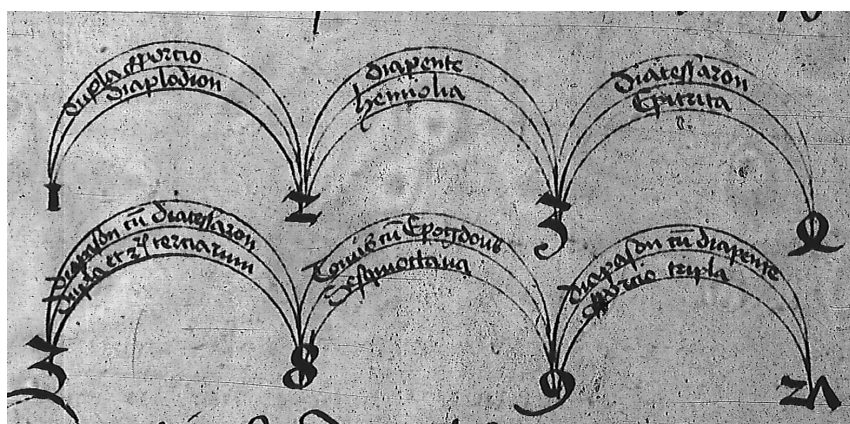 dupla ꝓporcio
diaplodion
diapente
hemiolia
diatessaron
Epitrita
1 2 3 4
diapason cū diatessaron
dupla et terciarum
Tonus cū Epogdous
Sesquioctaua
diapason cū diapente
ꝓporcio tripla
3 8 9 27